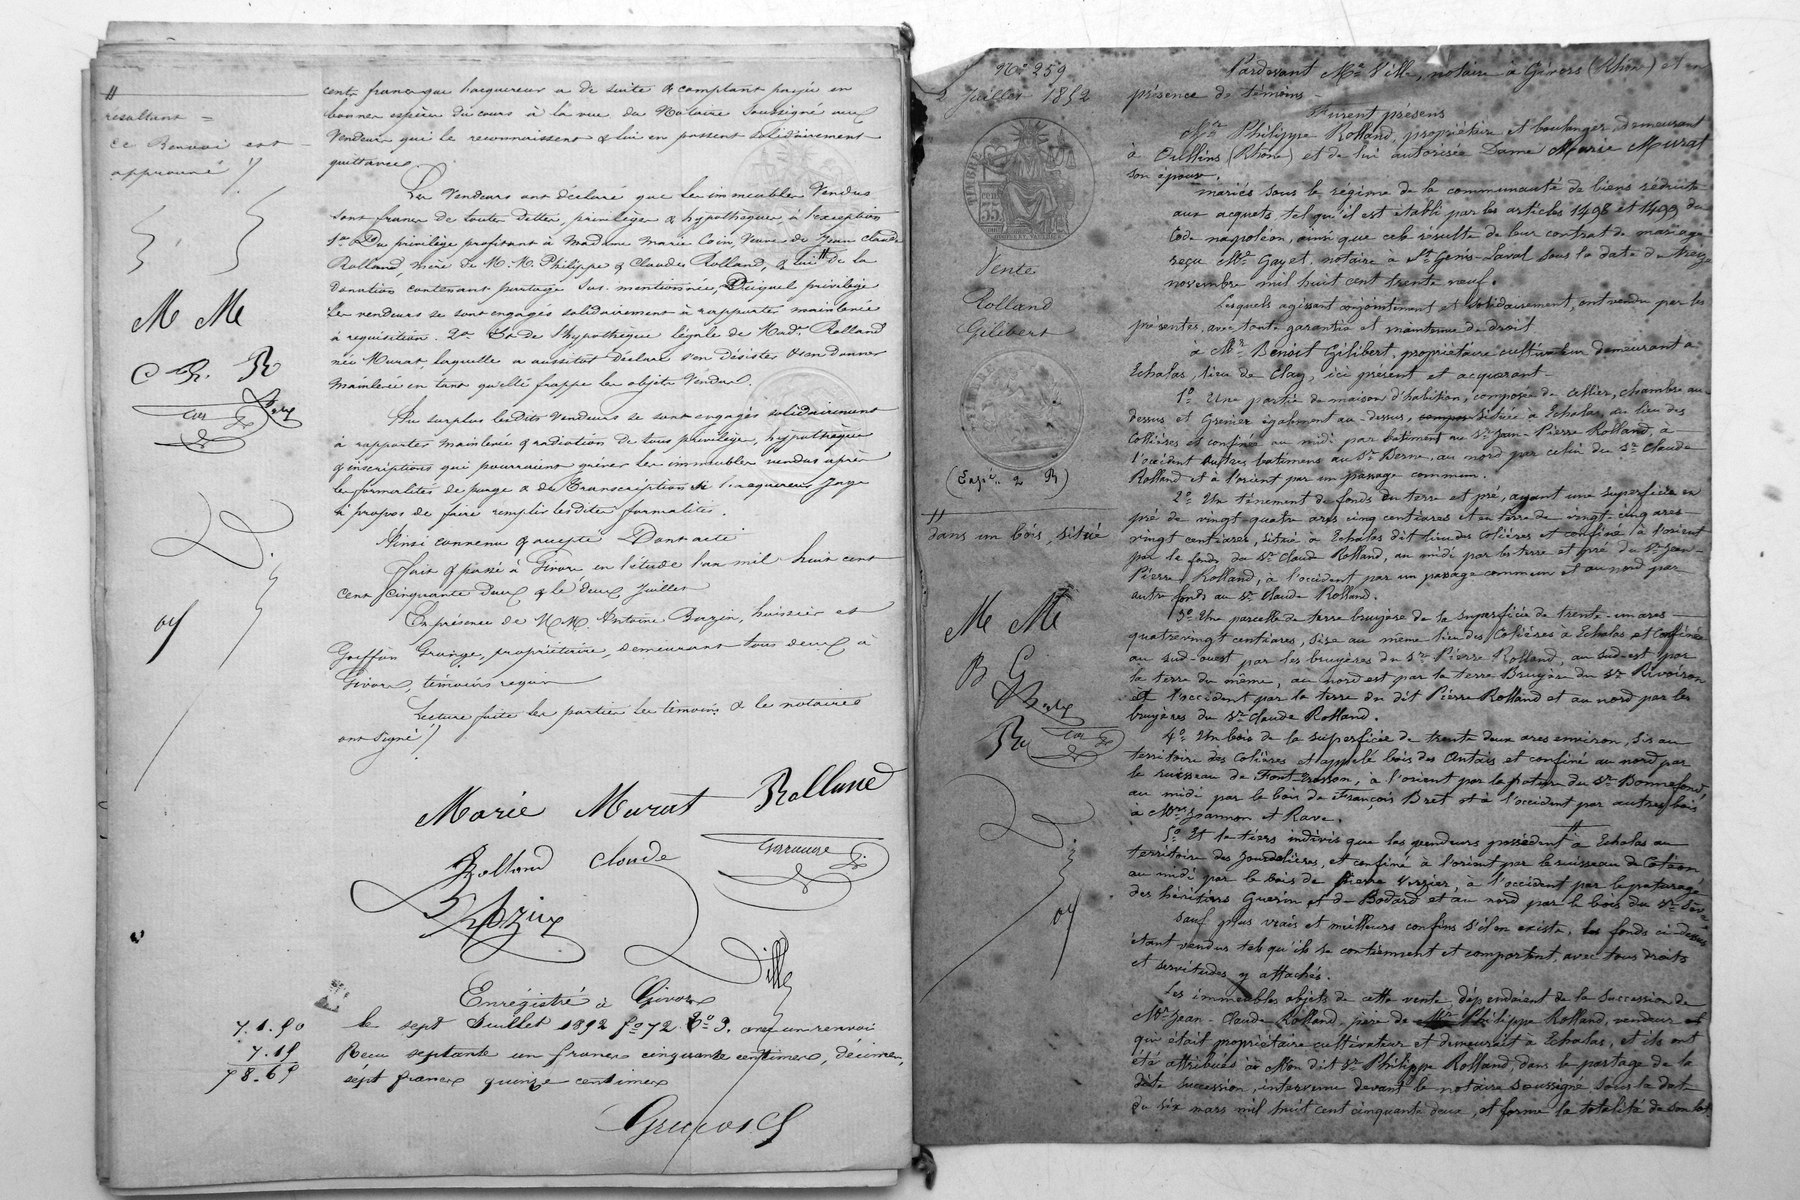 "
résultant =
ce Renvoi est
approuvé //
M Me
C R. R
cents francs que l'acquéreur a de suite & comptant payés en
bonnes espèces du cours à la vue du Notaire soussigné aux
Vendeurs qui le reconnaissent & lui en passent solidairement
quittance.
Les Vendeurs ont déclaré que les immeubles Vendus
sont francs de toutes dettes, privilèges & hypothèques, à l'exception
1o Du privilège profitant à Madame Marie Coin, Veuve de Jean Claude
Rolland, mère de M.M. Philippe & Claude Rolland, & lui " de la
donation contenant partage sus-mentionnée, Duquel privilège
les vendeurs se sont engagés solidairement à rapporter mainlevée
à réquisition. 2o Et de l'hypothèque légale de Made Rolland
née Murat, laquelle a aussitot déclaré s'en désister & en donner
mainlevée en tant qu'elle frappe les objets Vendus.
Au surplus lesdits Vendeurs se sont engagés solidairement
à rapporter mainlevée & radiation de tous privilèges, hypothèques
& inscriptions qui pourraient grèver les immeubles vendus après
les formalités de purge & de transcription si l'acquéreur juge
à propos de faire remplir lesdites formalités.
Ainsi convenu & accepté Dont acte
fait & passé à Givors en l'étude l'an mil huit cent
cent cinquante Deux & le deux Juillet
En présence de M.M. Antoine Bazin, huissier et
Goiffon Grange, propriétaire, demeurant tous deux à
Givors, témoins requis
Lecture faite les parties les témoins & le notaire
ont signé //
Marie Murat Rolland
Rolland Claude
Bazin
Ville
Enrégistré à Givors
le sept Juillet 1852 fo 72 Co 3. avec un renvoi
Reçu septante un francs cinquante centimes, décimes,
sépt francs quinze centimes
71.50
7.15
78.65
No 259
2 Juillet 1852
Vente
Rolland
Gilibert
(Expé. 2 R)
"
dans un bois, situé
Me Me
B G
R
Pardevant Me Ville, notaire à Givors (Rhône) et en
présence de témoins
Furent présens
Mr Philippe Rolland, propriétaire et boulanger, demeurant
à Oullins (Rhône) et de lui autorisée Dame Marie Murat
son épouse,
mariés sous le régime de la communauté de biens réduite
aux acquets tel qu'il est établi par les articles 1498 et 1499 du
Code napoléon, ainsi que cela résulte de leur contrat de mariage
reçu Me Gayet, notaire à St Genis-Laval sous la date du treize
novembre mil huit cent trente neuf.
Lesquels agissant conjointement et solidairement, ont vendu par les
présentes, avec toute garantie et maintenue de droit
à Mr Benoit Gilibert, propriétaire cultivateur demeurant à
Echalas, lieu de Clay, ici présent et acquérant
1o Une partie de maison d'habitation, composée de cellier, chambre au-
dessus et Grenier également au-dessus, située à Echalas, au lieu des
Colières et confinée au midi par batiment au Sr Jean-Pierre Rolland, à
l'occident autres batimens au Sr Berne, au nord par celui du Sr Claude
Rolland et à l'orient par un passage commun.
2o Un ténement de fonds en terre et pré, ayant une superficie en
pré de vingt-quatre ares cinq centiares et en terre de vingt-cinq ares
vingt centiares, situé à Echalas dit lieu des Colières et confiné à l'orient
par le fonds du Sr Claude Rolland, au midi par la terre et pré du Sr Jean-
Pierre Rolland, à l'occident par un passage commun et au nord par
autre fonds au Sr Claude Rolland.
3o Une parcelle de terre bruyère de la superficie de trente-un ares
quatrevingt centiares, sise au même lieu des Colières à Echalas et confinée
au sud-ouest par les bruyères du Sr Pierre Rolland, au sud-est par
la terre du même, au nord est par la terre Bruyère du Sr Rivoiron
et l'occident par la terre du dit Pierre Rolland et au nord par les
bruyères du Sr Claude Rolland.
4o Un bois de la superficie de trente deux ares environ, sis au
territoire des Colières et appelé bois des Antais et confiné au nord par
le ruisseau de Font-, à l'orient par la pature du Sr Bonnefond,
au midi par le bois de François Bret et à l'occident par autres bois
à Mrs Jeannon et Rave.
5o Et le tiers indivis que les vendeurs possèdent " à Echalas au
territoire des Jourdelières, et confiné à l'orient par le ruisseau de Cotéon
au midi par le bois de Pierre Verzier, à l'occident par le paturage
des héritiers Guérin et de Bodard et au nord par le bois du Sr
sauf plus vrais et meilleurs confins s'il en existe, les fonds ci-dessus
étant vendus tels qu'ils se contiennent et comportent, avec tous droits
et servitudes y attachés.
Les immeubles objets de cette vente, dépendaient de la succession de
Mr Jean-Claude Rolland, père de Philippe Rolland, vendeur et
qui était propriétaire cultivateur et demeurait à Echalas, et ils ont
été attribués à mon dit Sr Philippe Rolland, dans le partage de la
dite succession, intervenu devant le notaire soussigné sous la date
du six mars mil huit cent cinquante deux, et forme la totalité de son lot.